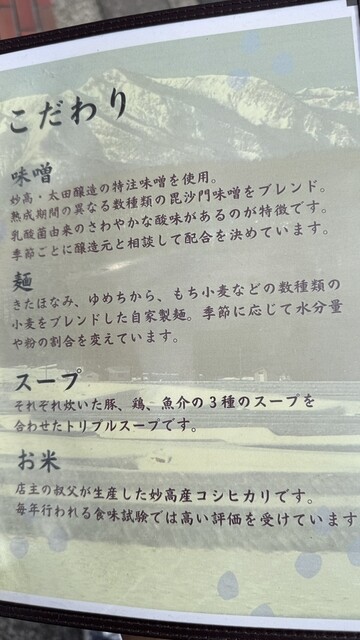 こだわり
味噌
妙高・太田醸造の特注味噌を使用。
熟成期間の異なる数種類の毘沙門味噌をブレンド。
乳酸菌由来のさわやかな酸味があるのが特徴です。
季節ごとに醸造元と相談して配合を決めています。
麺
きたほなみ、ゆめちから、もち小麦などの数種類の
小麦をブレンドした自家製麺。季節に応じて水分量
や粉の割合を変えています。
スープ
それぞれ炊いた豚、鶏、魚介の3種のスープを
合わせたトリプルスープです。
お米
店主の叔父が生産した妙高産コシヒカリです。
毎年行われる食味試験では高い評価を受けています